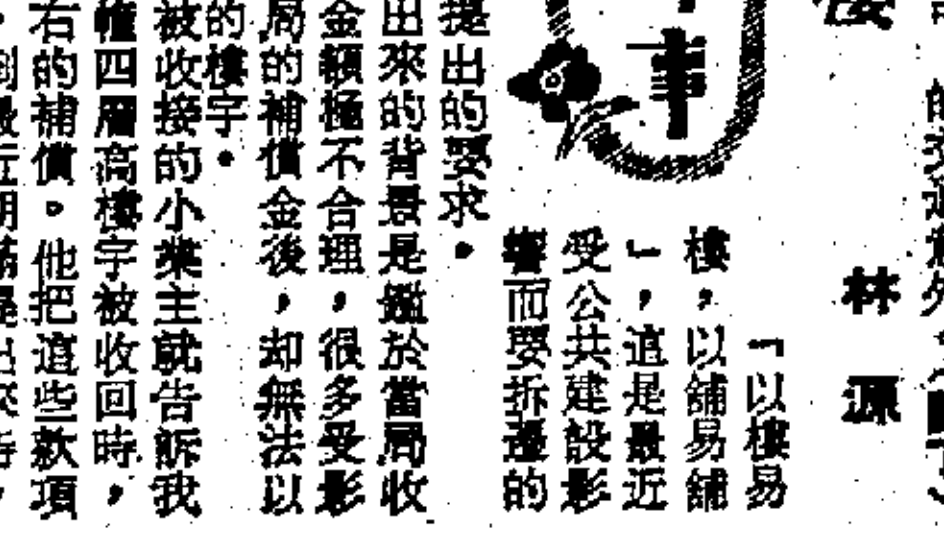 的交通意外
林源
「以樓易
樓，以舖易舖
」，這是最近
受公共建設影
響而要拆遷的
提出的要求。
出來的背景是鑑於當局收
金額極不合理，很多受影
局的補償金後，却無法以
的樓宇。
被收接的小業主就告訴我
幢四層高樓宇被收回時，
右的補償。他把這些款項